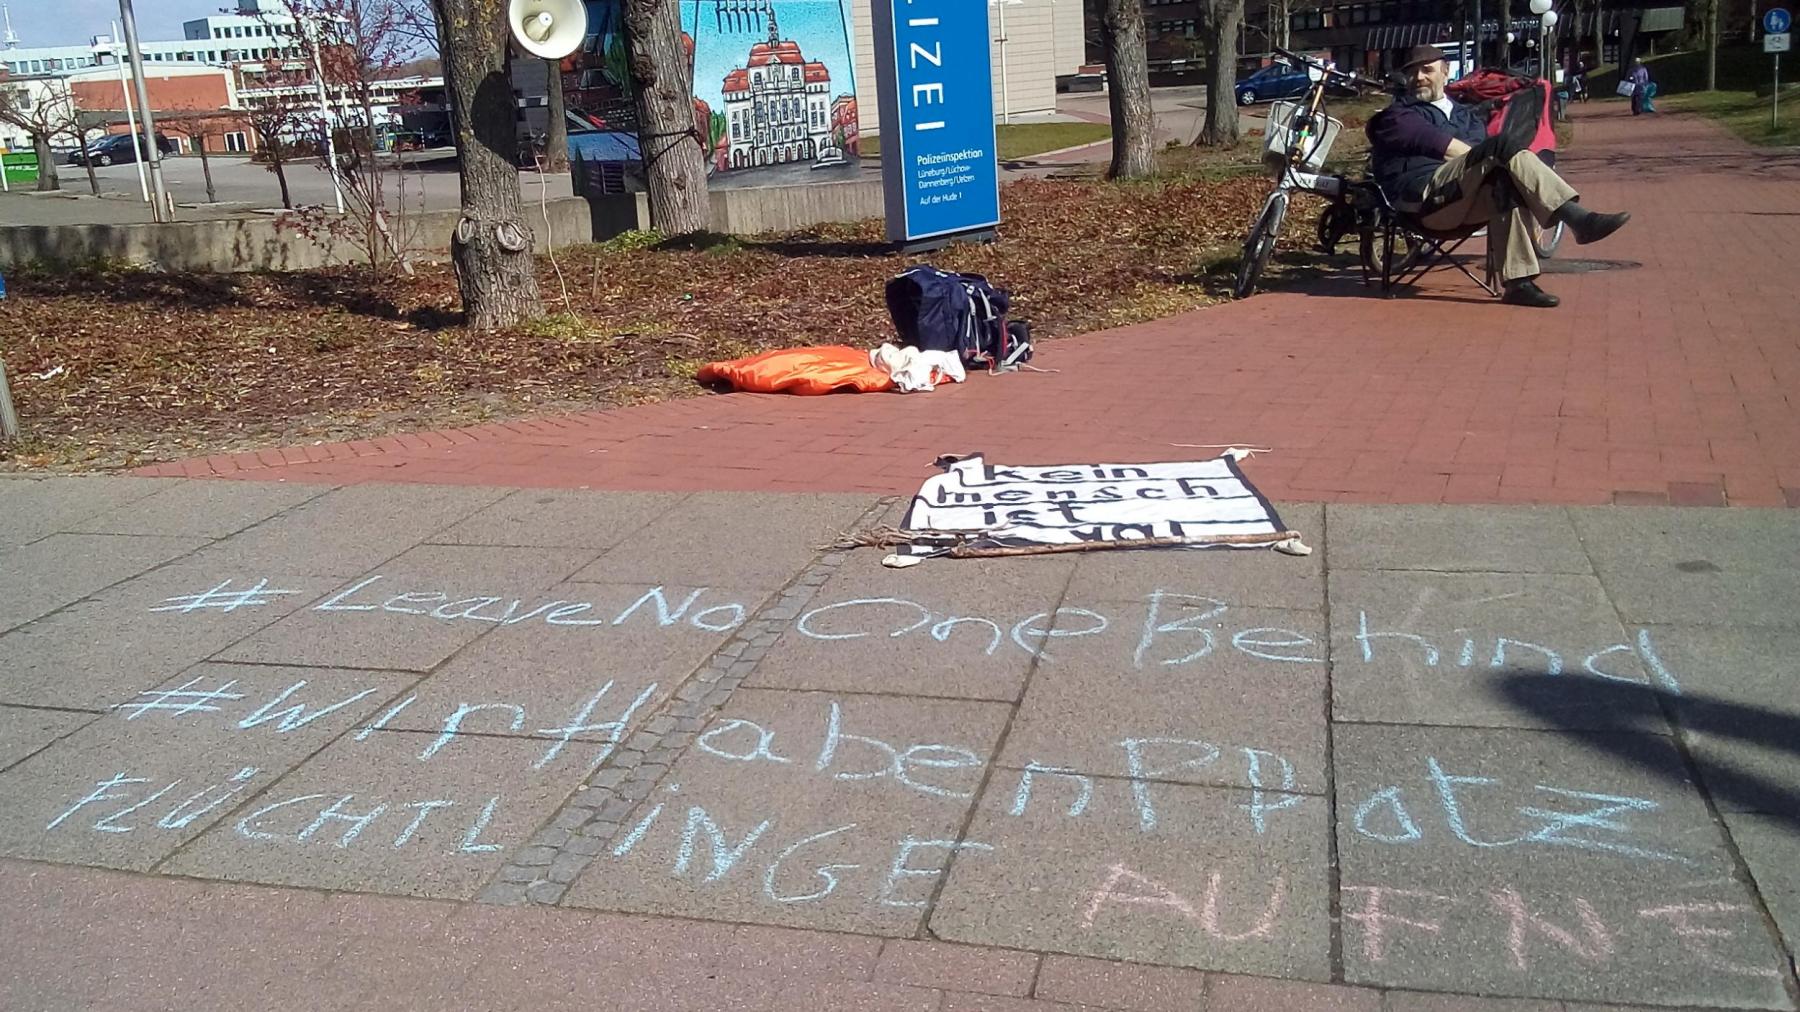 LIZEI
Polizeiinspektion
Lüneburg/Lüchow-
Dannenberg/Uelzen
Auf der Hude 1
kein
mensch
ist
#LeaveNoOneBehind
#WirHabenPlatz
FLÜCHTLINGE AUFNE